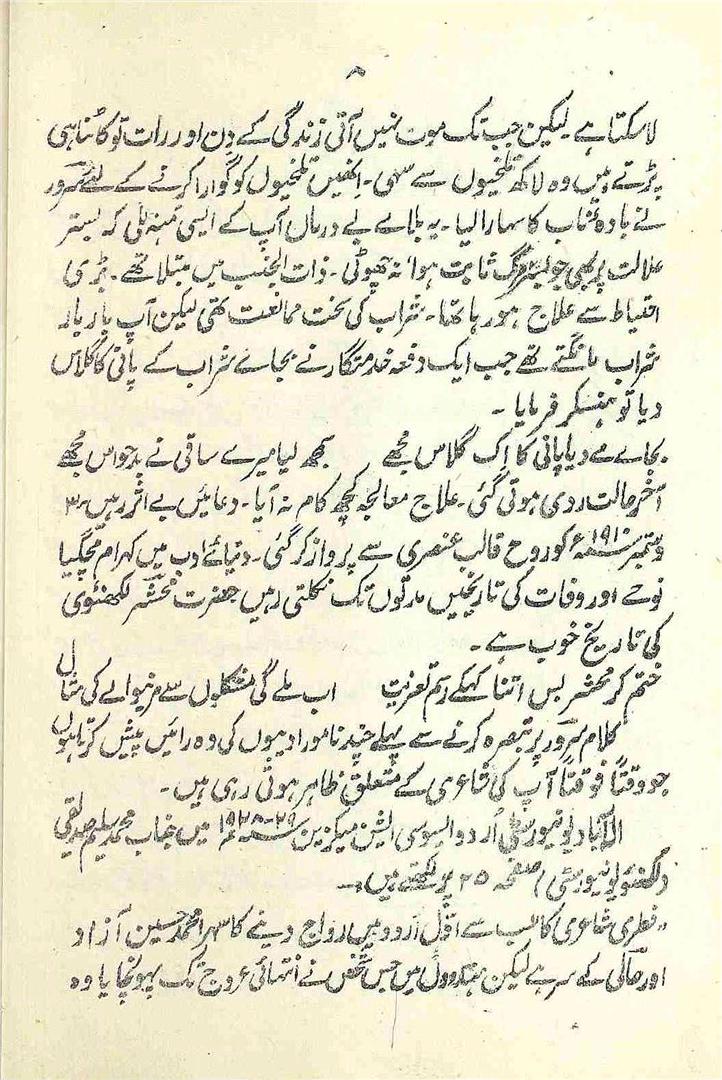 ۸
لاسکتا ہے۔ لیکن جب تک موت نہیں آتی زندگی کے دن اور رات تو کاٹنا ہی
پڑتے ہیں وہ لاکھ تلخیوں سے سہی۔ انھیں تلخیوں کو گوارا کرنے کے لئے سرور
نے بادہ ناب کا سہارا لیا۔ یہ بلائے بے درماں آپ کے ایسی منہ لگی کہ بستر
علالت پر بھی جو بستر مرگ ثابت ہوا، نہ چھوٹی۔ ذات الجنب میں مبتلا تھے۔ بڑی
احتیاط سے علاج ہو رہا تھا۔ شراب کی سخت ممانعت تھی لیکن آپ بار بار
شراب مانگتے تھے جب ایک دفعہ خدمتگار نے بجائے شراب کے پانی کا گلاس
دیا تو ہنسکر فرمایا۔
بجائے مے دیا پانی کا اک گلاس مجھے سمجھ لیا میرے ساقی نے بدحواس مجھے
آخر حالت ردی ہوتی گئی۔ علاج معالجہ کچھ کام نہ آیا۔ دعائیں بے اثر رہیں ۳
دسمبر ۱۹۱۰ء کو روح قالب عنصری سے پرواز کر گئی۔ دنیائے ادب میں کہرام مچگیا
نوحے اور وفات کی تاریخیں مدتوں تک نکلتی رہیں حضرت محشر لکھنوی
کی تاریخ خوب ہے۔
ختم کر محشر بس اتنا کہکے رسم تعزیت اب ملے گی مشکلوں سے مرنیوالے کی مثال
کلام سرور پر تبصرہ کرنے سے پہلے چند نامور ادیبوں کی وہ رائیں پیش کرتا ہوں
جو وقتاً فوقتاً آپ کی شاعری کے متعلق ظاہر ہوتی رہی ہیں۔
الہ آباد یونیورسٹی اُردو ایسوسی ایشن میگزین ۲۹-۱۹۲۸ء میں جناب محمد سلیم صدیقی
(لکھنؤ یونیورسٹی) صفحہ ۲۵ پر لکھتے ہیں:۔
"فطری شاعری کا سب سے اوّل اُردو میں رواج دینے کا سہرا محمد حسین آزاد
اور حالی کے سر ہے لیکن ہندوؤں میں جس شخص نے انتہائی عروج تک پہونچایا وہ